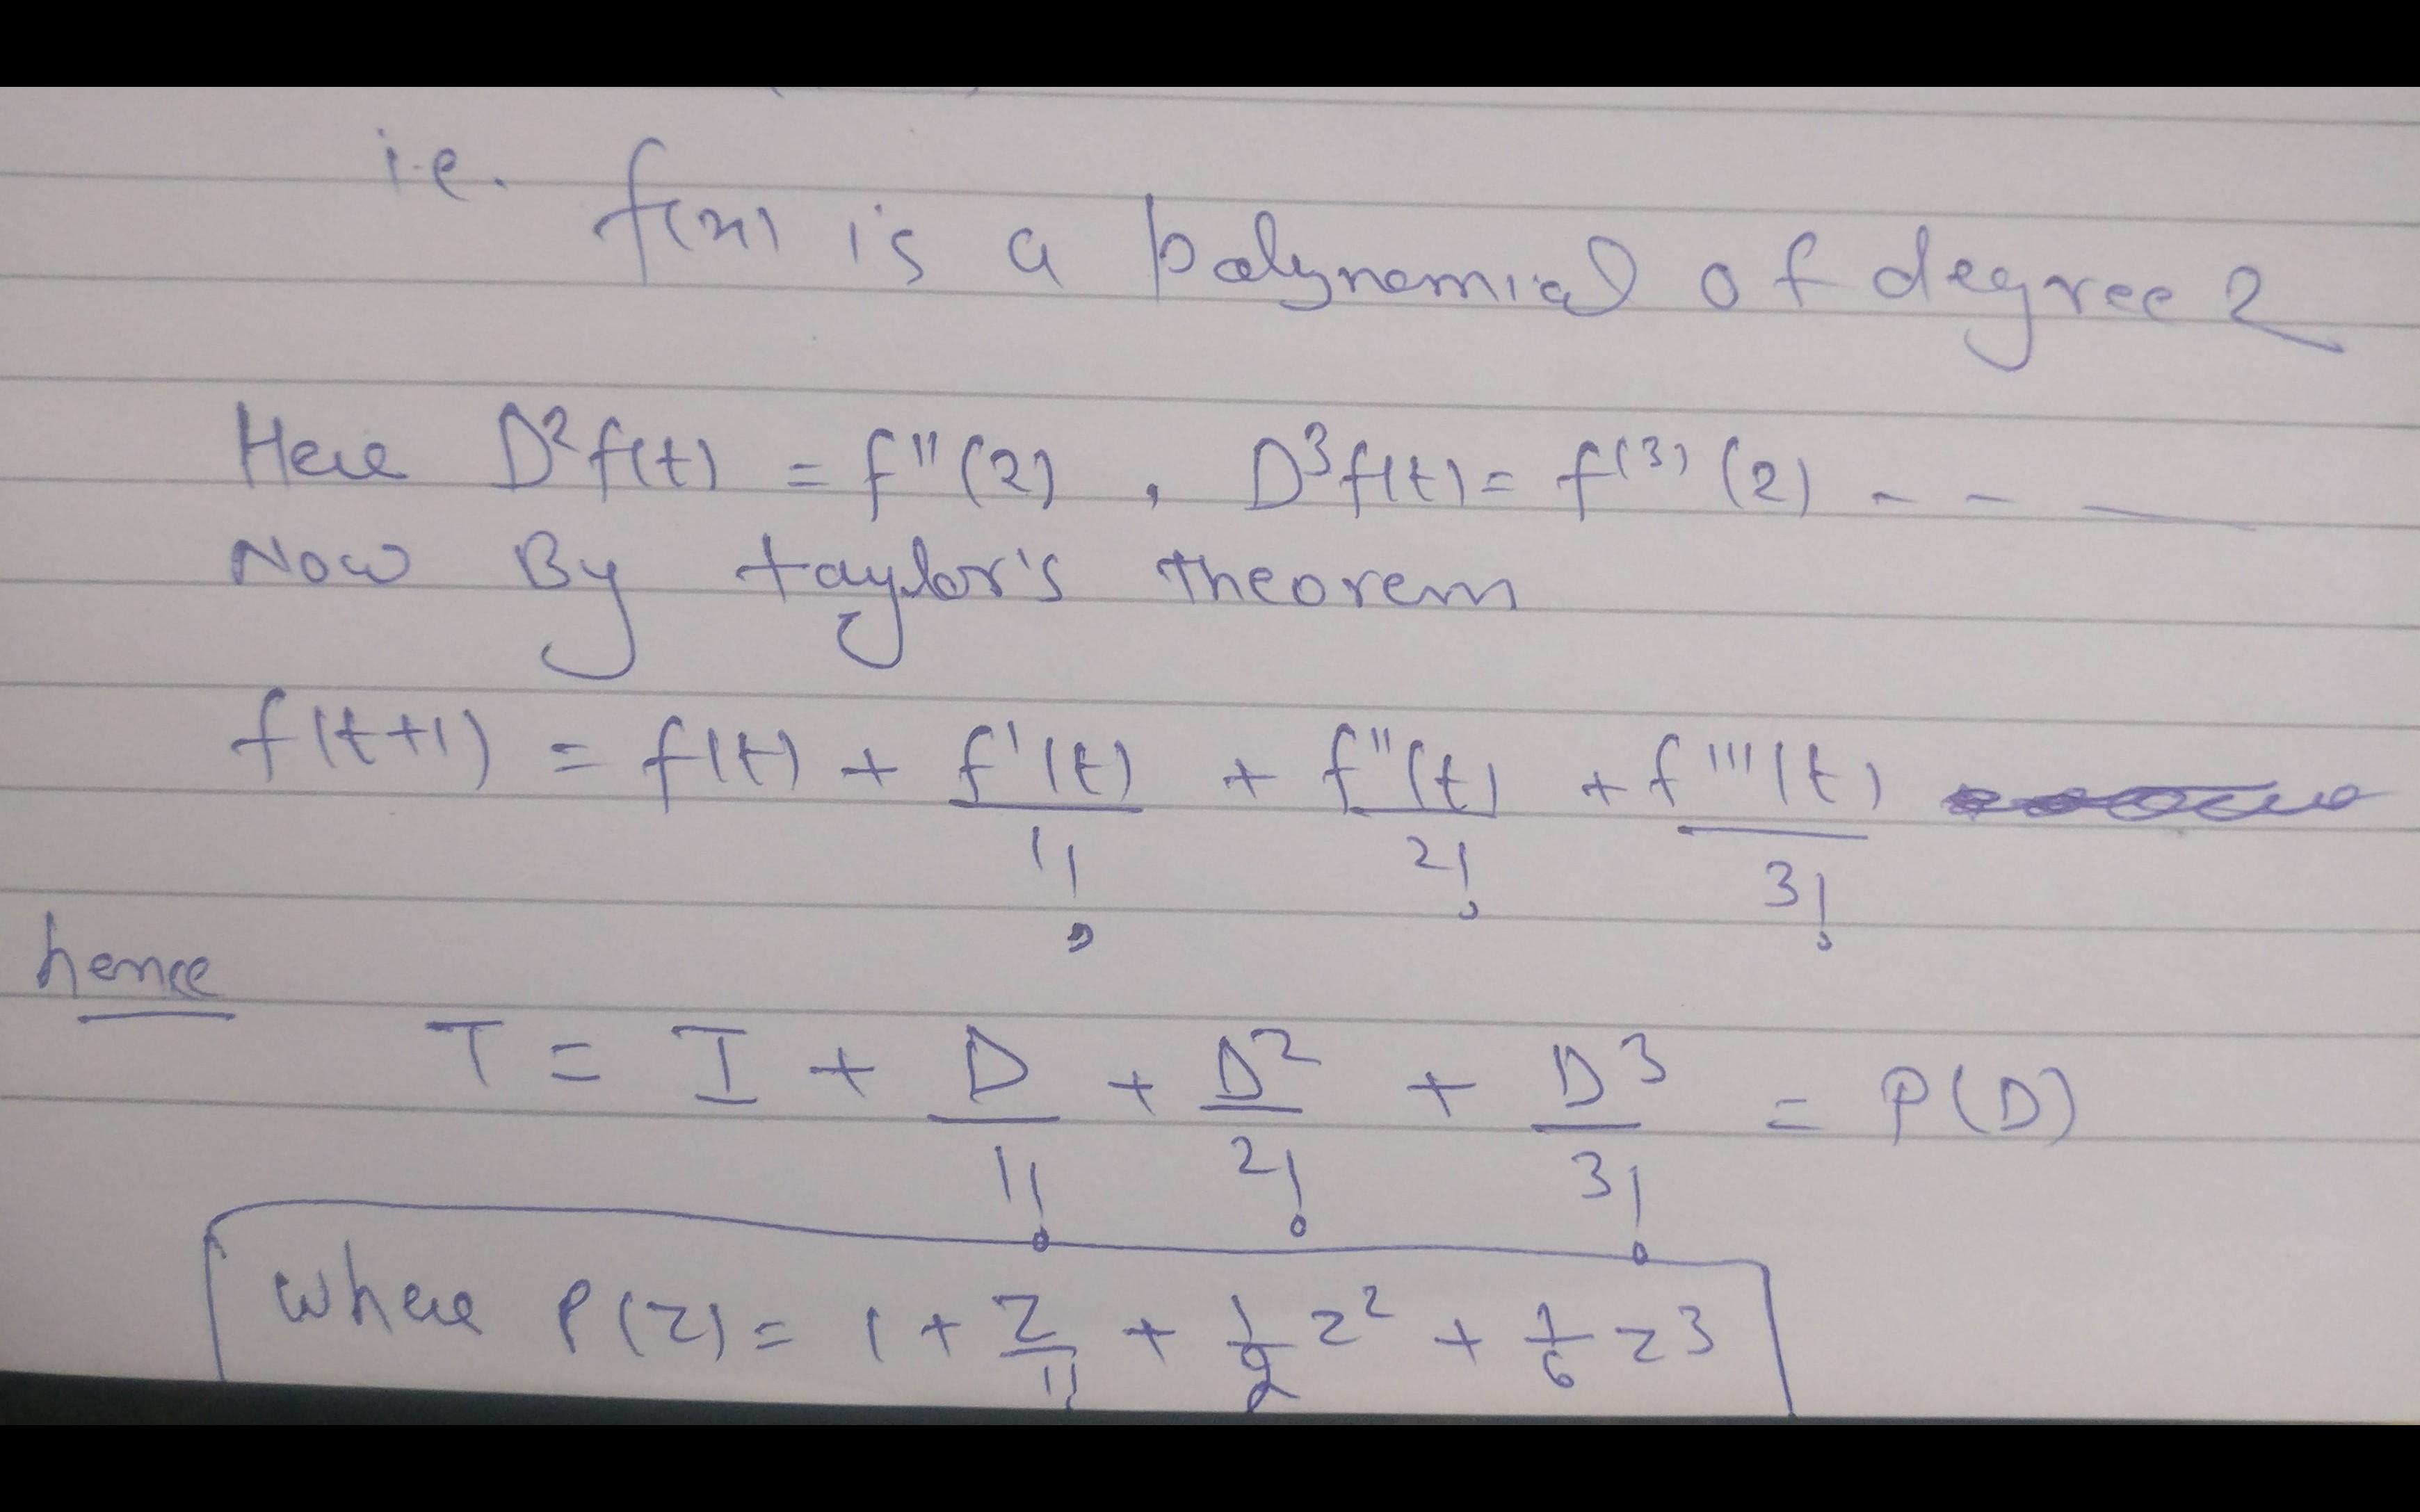 i.e. f(x) is a polynomial of degree 2
Here D²f(t) = f''(2) , D³f(t) = f⁽³⁾(2) - - —
Now By taylor's theorem
f(t+1) = f(t) + f'(t)/1! + f''(t)/2! + f'''(t)/3!
hence
T = I + D/1! + D²/2! + D³/3! = P(D)
where P(z) = 1 + z/1! + 1/2 z² + 1/6 z3